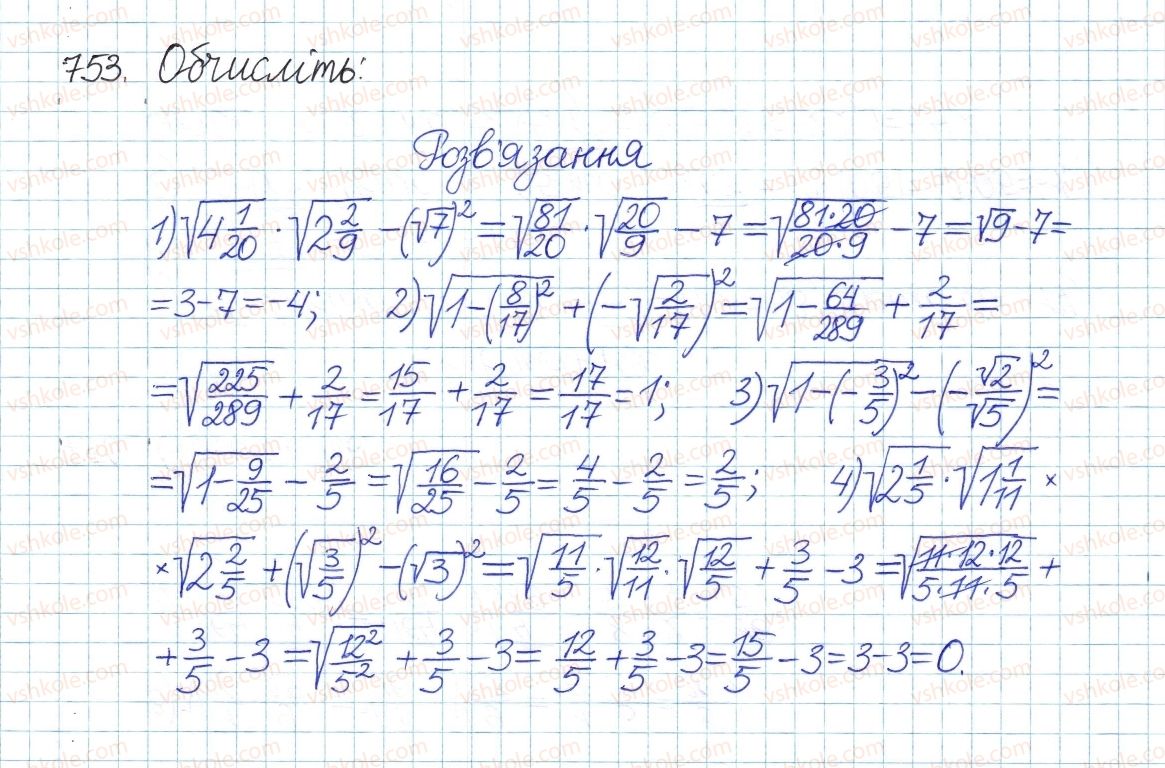 753. Обчисліть:
Розв'язання
1) √(4 1/20) · √(2 2/9) - (√7)² = √(81/20) · √(20/9) - 7 = √((81·20)/(20·9)) - 7 = √9 - 7 =
= 3 - 7 = -4; 2) √(1 - (8/17)²) + (-√(2/17))² = √(1 - 64/289) + 2/17 =
= √(225/289) + 2/17 = 15/17 + 2/17 = 17/17 = 1; 3) √(1 - (-3/5)²) - (-√2/√5)² =
= √(1 - 9/25) - 2/5 = √(16/25) - 2/5 = 4/5 - 2/5 = 2/5; 4) √(2 1/5) · √(1 1/11) ×
× √(2 2/5) + (√(3/5))² - (√3)² = √(11/5) · √(12/11) · √(12/5) + 3/5 - 3 = √((11·12·12)/(5·11·5)) +
+ 3/5 - 3 = √(12²/5²) + 3/5 - 3 = 12/5 + 3/5 - 3 = 15/5 - 3 = 3 - 3 = 0.